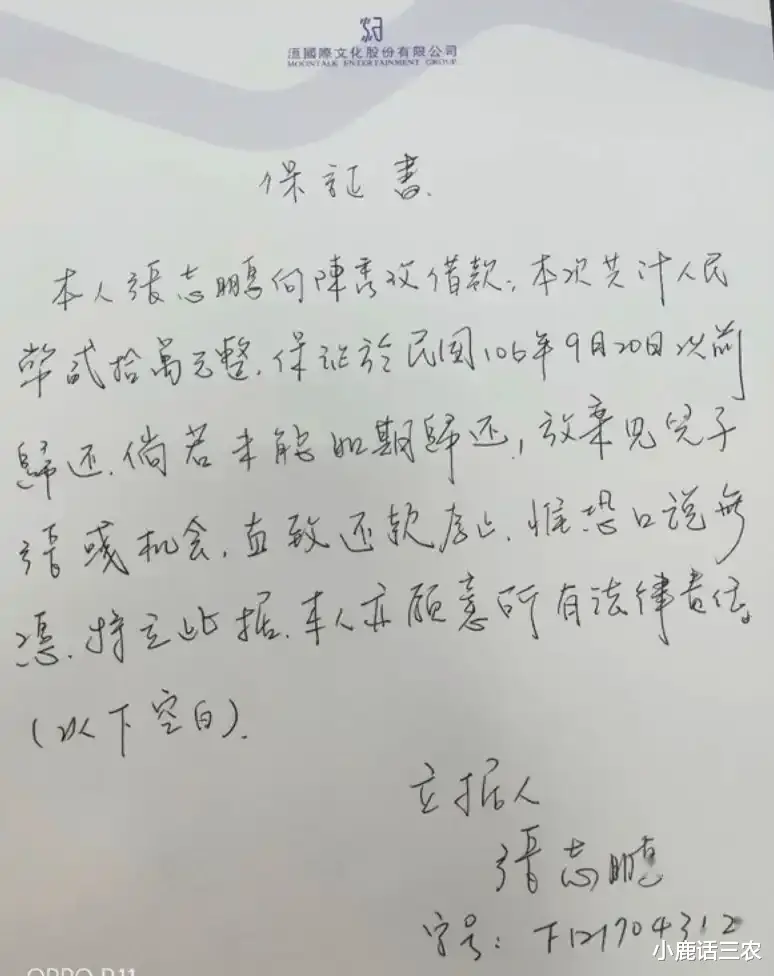 洹國際文化股份有限公司
MOONTALK ENTERTAINMENT GROUP
保証書.
本人張志鵬向陳秀玫借款,本次共計人民
幣貳拾萬元整.保証於民国106年9月20日以前
歸还.倘若未能如期歸还,放棄见兒子
張彧机会,直致还款为止.惟恐口说無
憑.特立此据.本人亦願意所有法律责任。
(以下空白).
立据人
張志鵬
字号:F121704312
小鹿话三农
OPPO R11